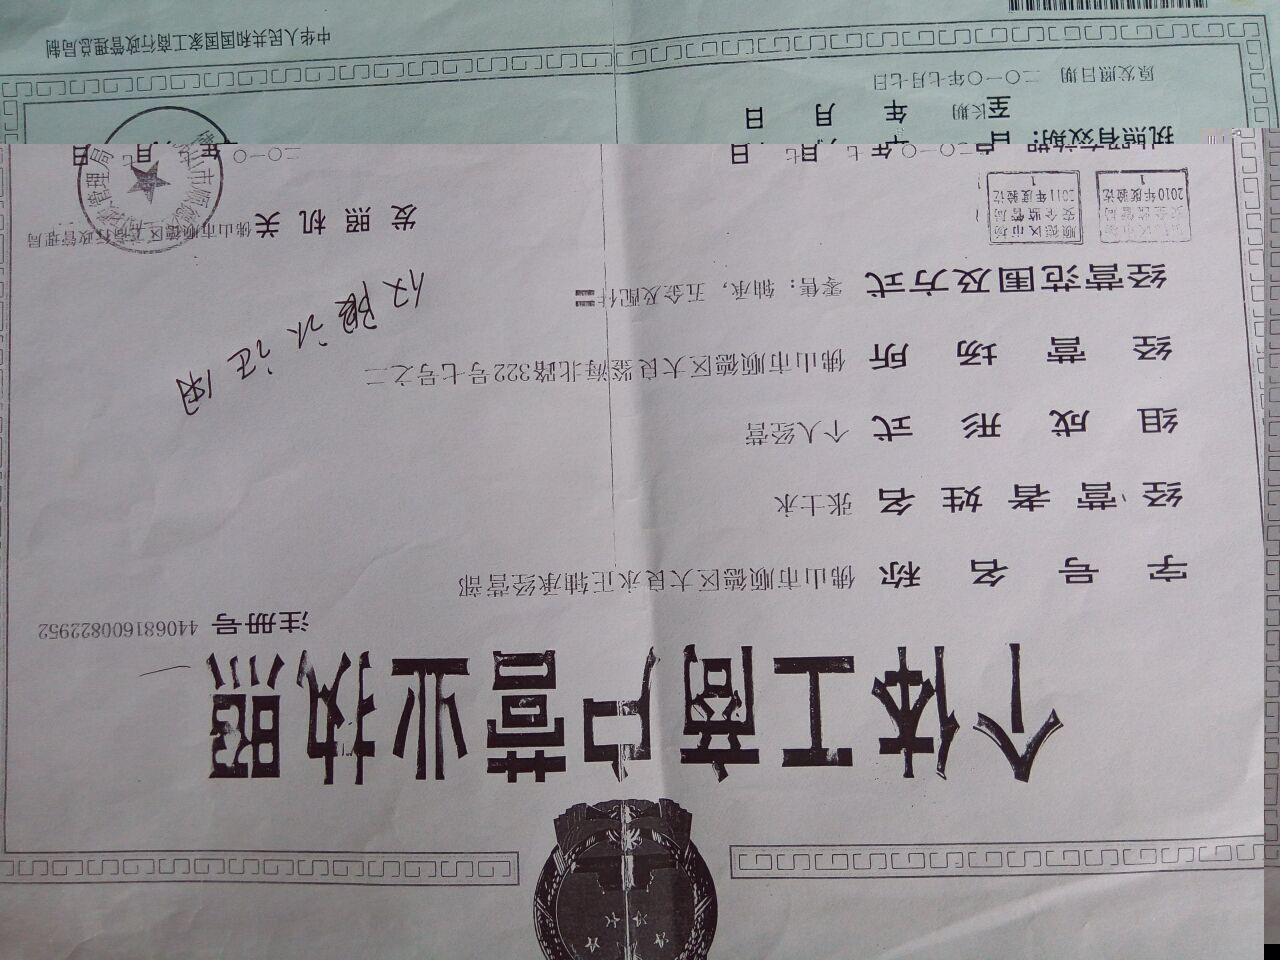 个体工商户营业执照
注册号 440681600822952
字号名称 佛山市顺德区大良永正轴承经营部
经营者姓名 张士永
组成形式 个人经营
经营场所 佛山市顺德区大良鉴海北路322号七号之二
经营范围及方式 零售：轴承，五金及配件
仅限认证用
顺德区市场
安全监管局
2010年度验讫
1
顺德区市场
安全监管局
2011年度验讫
1
发照机关 佛山市顺德区工商行政管理局
执照有效期：自二〇一〇年七月七日
至长期 年 月 日
二〇一〇年七月七日
原发照日期 二〇一〇年七月七日
中华人民共和国国家工商行政管理总局制